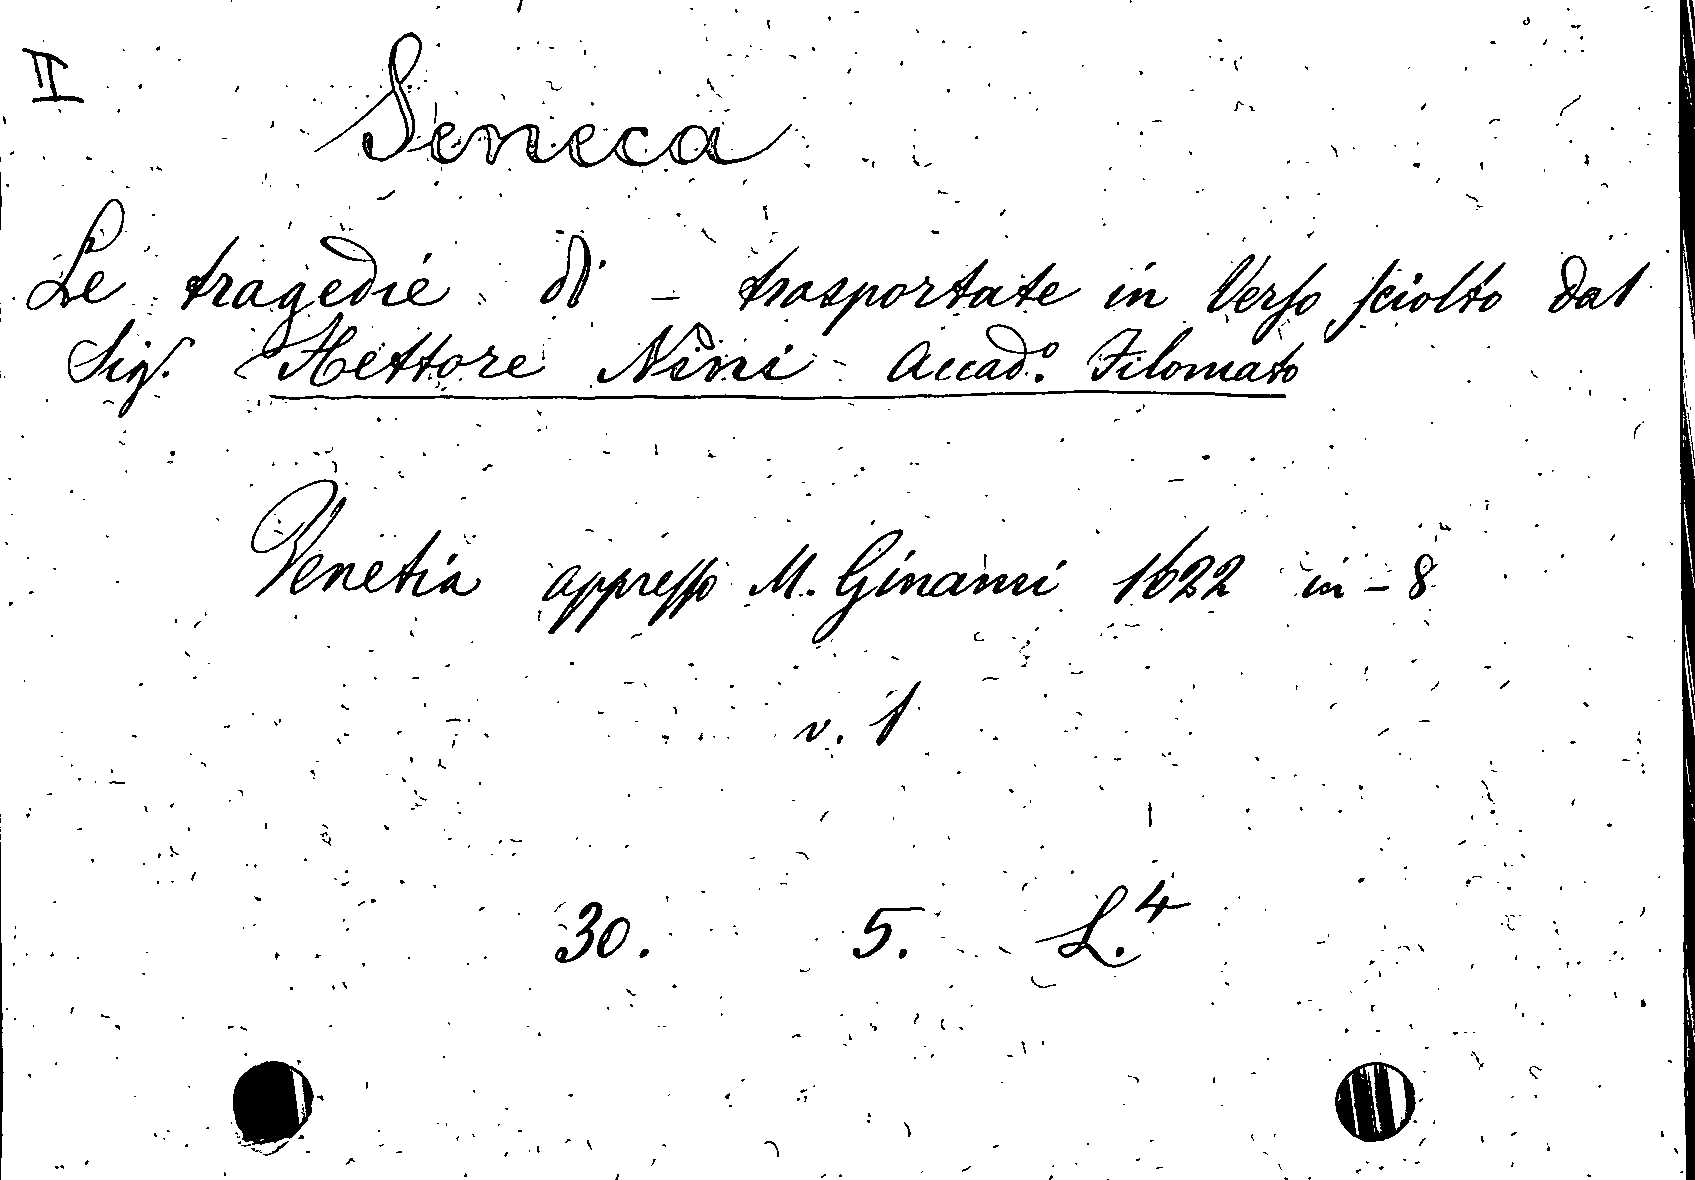 II
Seneca
Le tragedie di - trasportate in Verso sciolto dal
Sig. Hettore Nini - Accad.o Filomato
Venetia appresso M. Ginami 1622 in-8
v. 1
30. 5. L.4